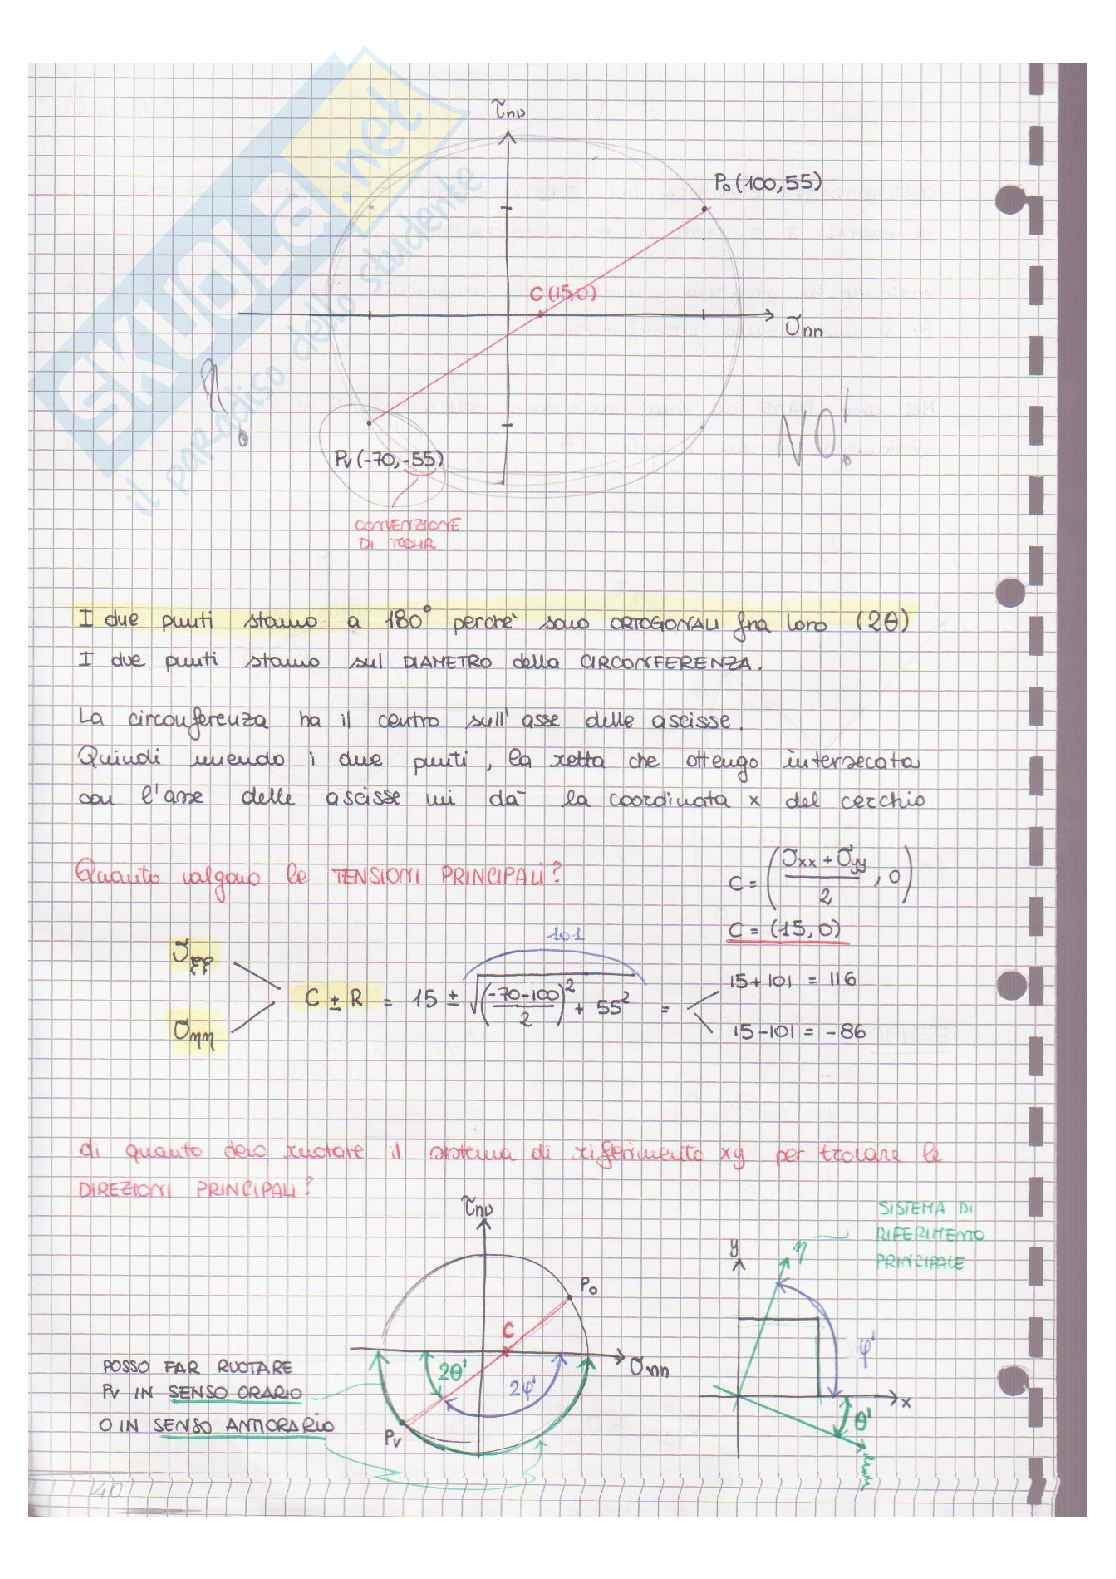 SKUOLA.net
il paradiso dello studente
τnν
P₀(100,55)
C(15,0)
σnn
NO!
Pv(-70,-55)
CONVENZIONE
DI MOHR
I due punti stanno a 180° perchè sono ORTOGONALI fra loro (2θ)
I due punti stanno sul DIAMETRO della CIRCONFERENZA.
La circonferenza ha il centro sull'asse delle ascisse.
Quindi unendo i due punti, la retta che ottengo intersecata
con l'asse delle ascisse mi dà la coordinata x del cerchio
Quanto valgono le TENSIONI PRINCIPALI?
C = ((σxx + σyy)/2 , 0)
C = (15,0)
101
σξξ
σηη
C ± R = 15 ± √(((-70-100)/2)² + 55²) =
15+101 = 116
15-101 = -86
di quanto devo ruotare il sistema di riferimento xy per trovare le
DIREZIONI PRINCIPALI?
τnν
P₀
C
σnn
2θ'
2φ'
Pv
POSSO FAR RUOTARE
Pv IN SENSO ORARIO
O IN SENSO ANTIORARIO
SISTEMA DI
RIFERIMENTO
PRINCIPALE
y
η
φ'
x
θ'
40